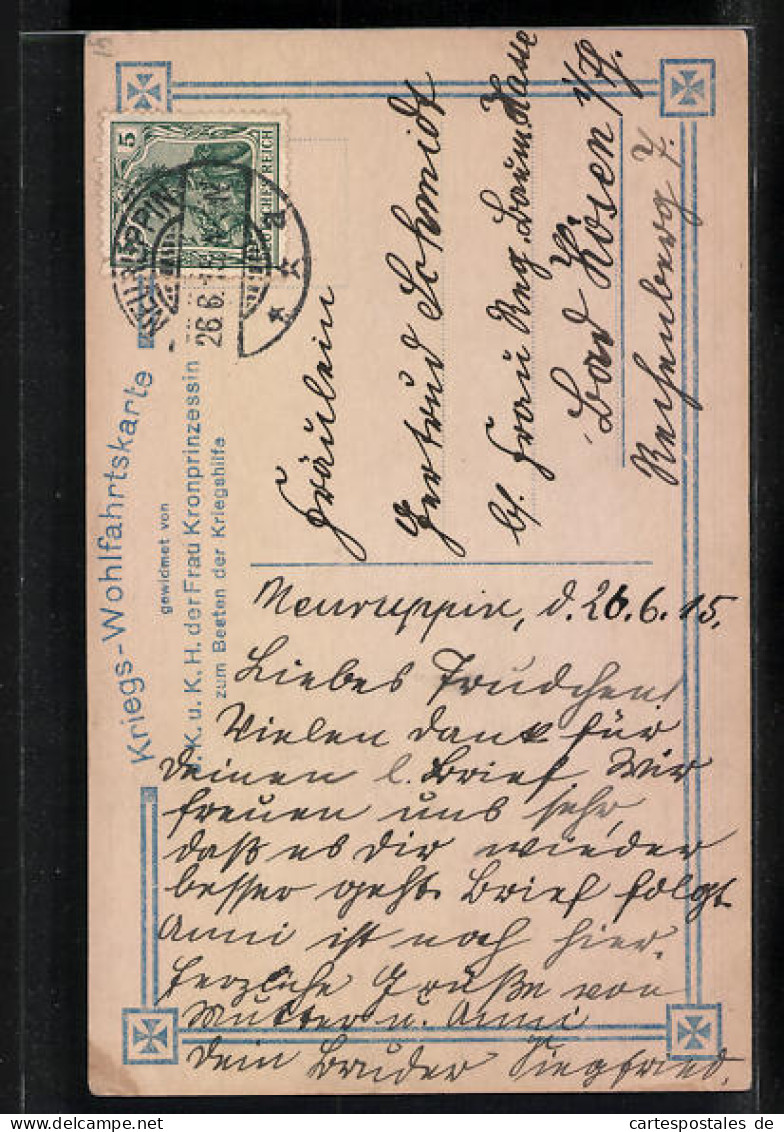 5
DEUTSCHES REICH
NEURUPPIN
26.6.
a
Kriegs-Wohlfahrtskarte
gewidmet von
I. K. u. K. H. der Frau Kronprinzessin
zum Besten der Kriegshilfe
Fräulein
Gertrud Schmidt
b/. Frau Reg. Baum. Hasse
Bad Kösen i/Th.
Rechenberg 7.
Neuruppin, d. 26.6.15.
Liebes Trudchen!
Vielen Dank für
Deinen l. Brief. Wir
freuen uns sehr,
daß es Dir wieder
besser geht. Brief folgt.
Anni ist noch hier.
Herzliche Grüße von
Mutter u. Anni
Dein Bruder Siegfried.
cartespostales de